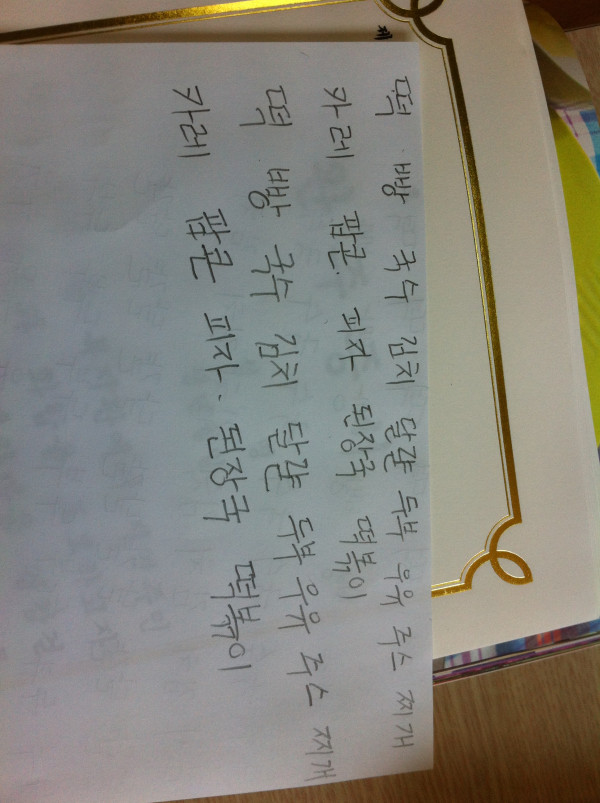 떡 빵 국수 김치 달걀 두부 우유 쥬스 찌개
카레 팝콘. 피자 된장국 떡볶이
떡 빵 국수 김치 달걀 두부 우유 쥬스 찌개
카레 팝콘 피자. 된장국 떡볶이